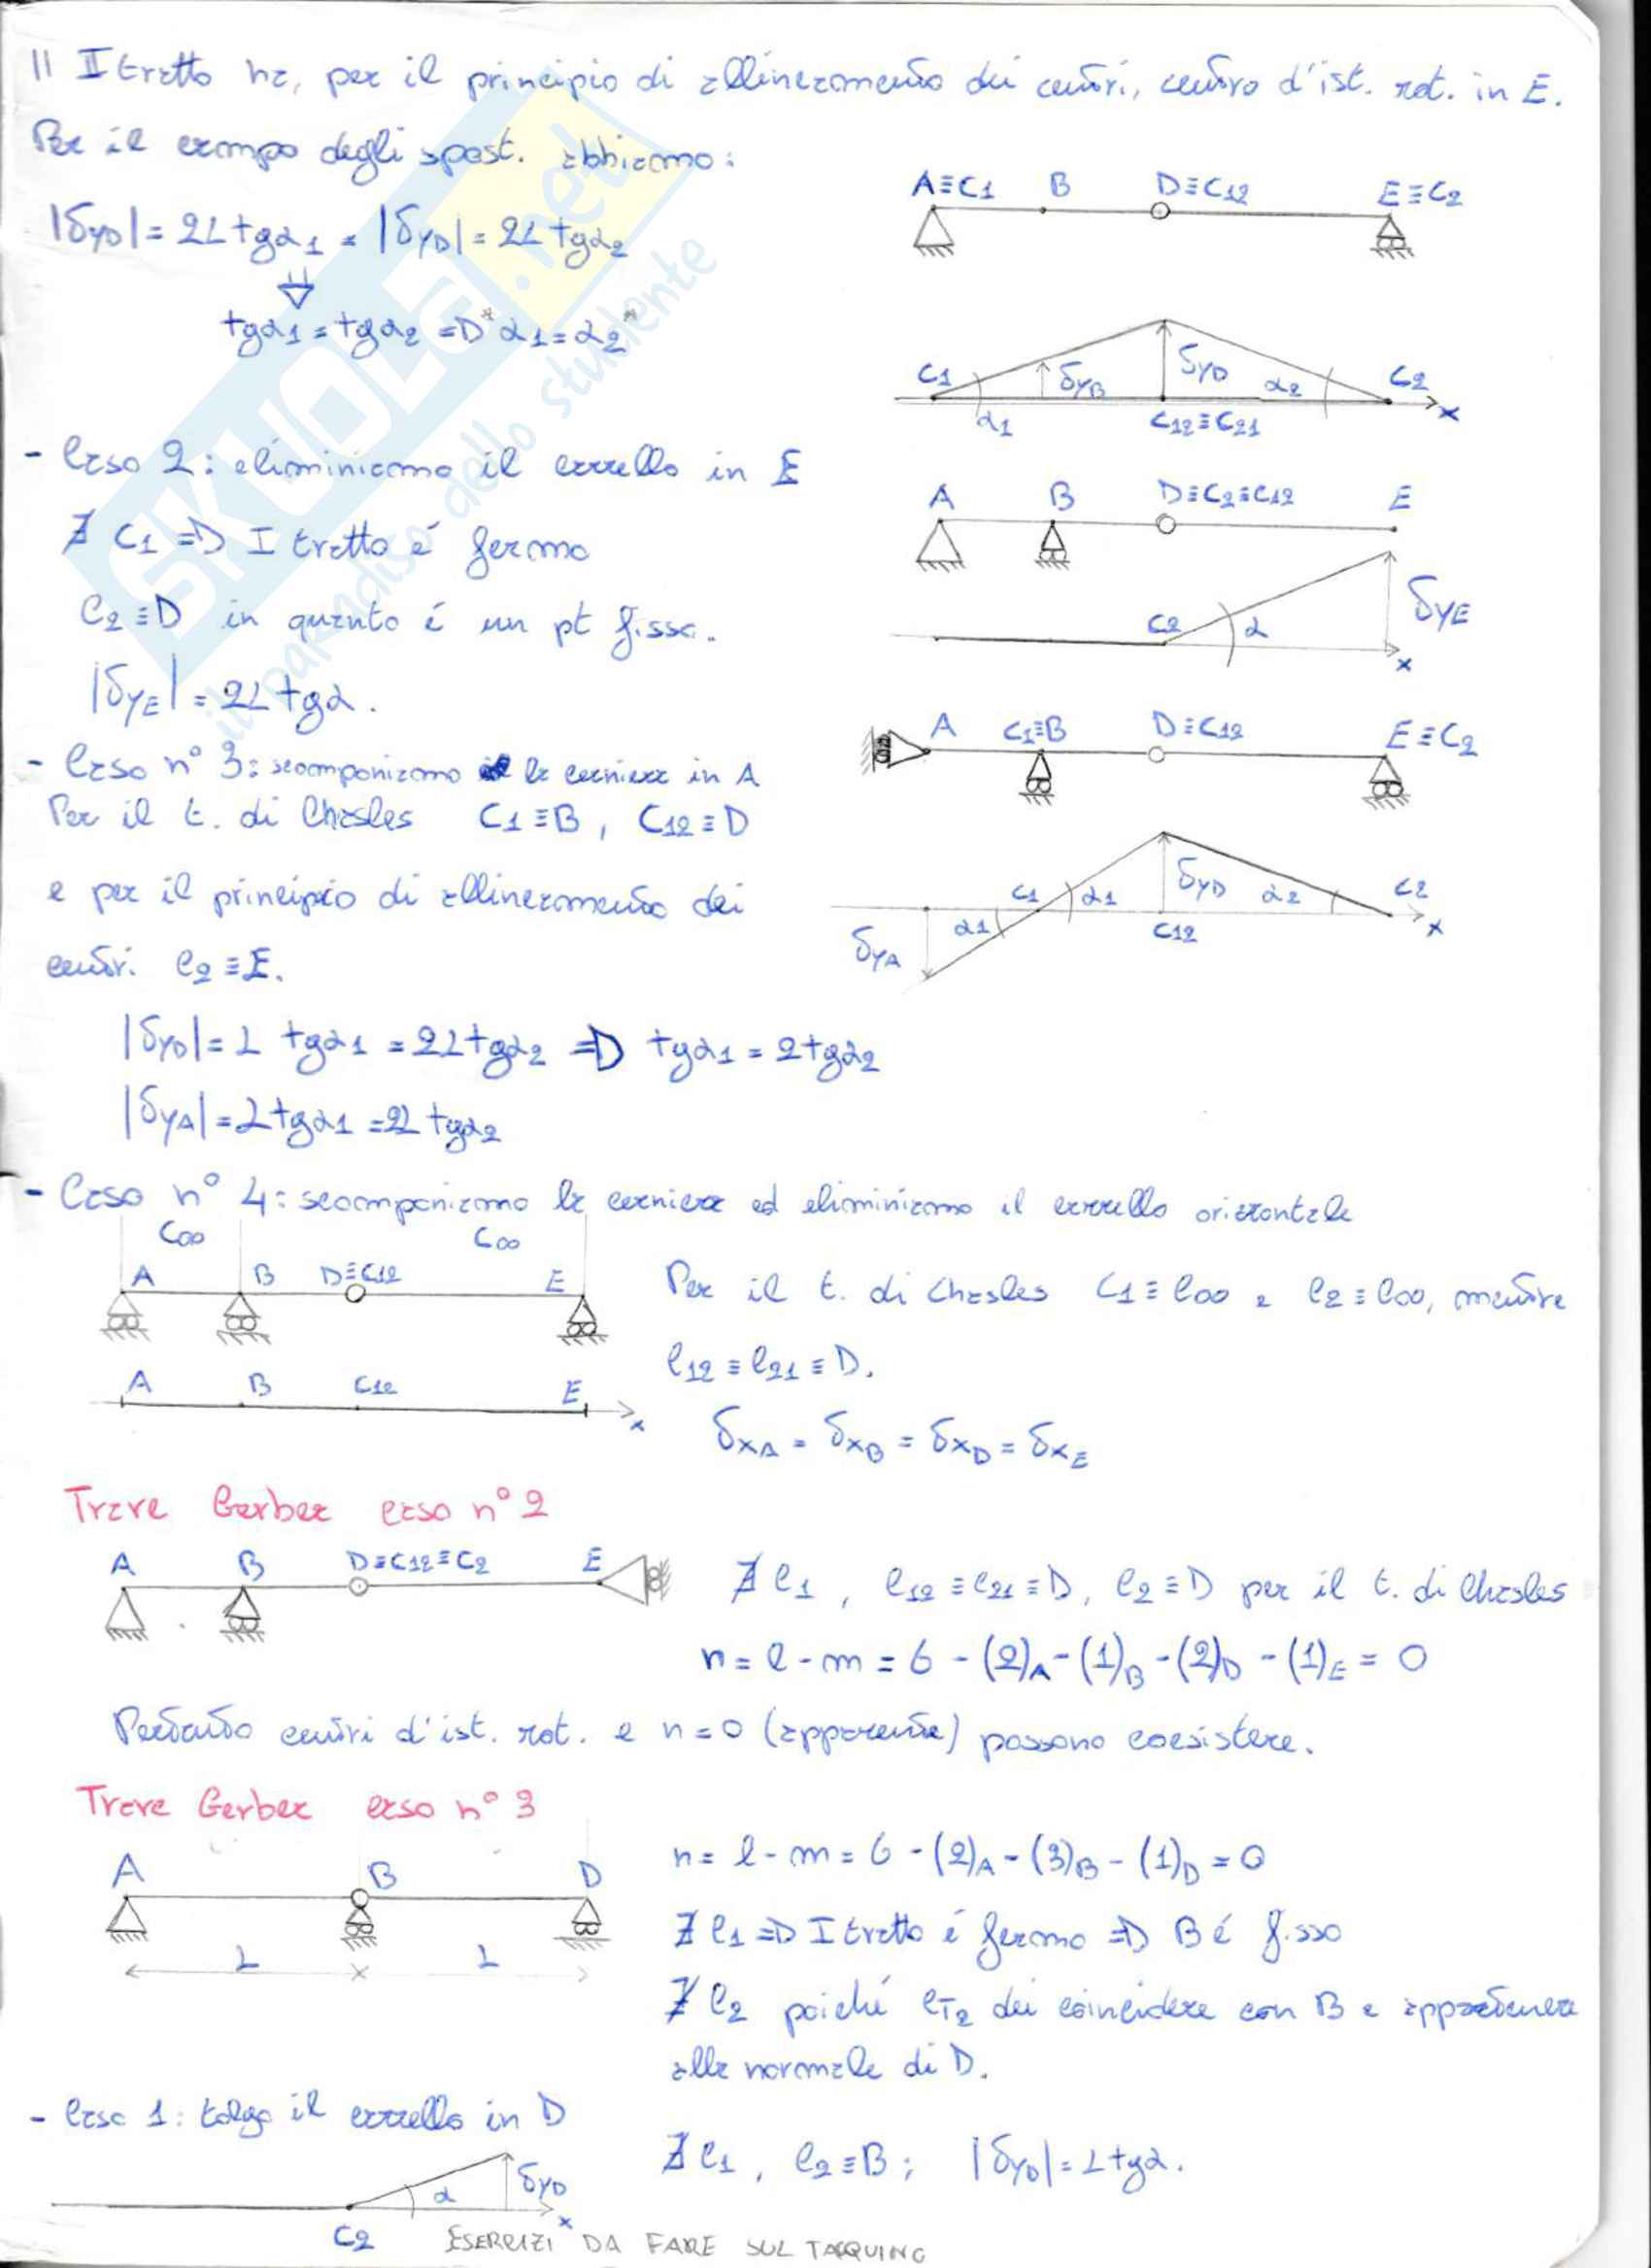 Il II tratto ha, per il principio di allineamento dei centri, centro d'ist. rot. in E.
Per il campo degli spost. abbiamo:
|δyD| = 2L tgα1 = |δyD| = 2L tgα2
⇓
tgα1 = tgα2 => "α1 = α2"
A≡C1 B D≡C12 E≡C2
C1 α1 δyB δyD C12≡C21 α2 C2 x
- Caso 2: eliminiamo il carrello in E
∄ C1 => I tratto é fermo
C2≡D in quanto é un pt fisso.
|δyE| = 2L tgα.
A B D≡C2≡C12 E
C2 α δyE x
- Caso n° 3: scomponiamo la cerniera in A
Per il t. di Chasles C1≡B, C12≡D
e per il principio di allineamento dei
centri. C2≡E.
A C1≡B D≡C12 E≡C2
δyA α1 C1 α1 δyD C12 α2 C2 x
|δyD| = L tgα1 = 2L tgα2 => tgα1 = 2tgα2
|δyA| = L tgα1 = 2L tgα2
- Caso n° 4: scomponiamo la cerniera ed eliminiamo il carrello orizzontale
C∞ C∞
A B D≡C12 E
Per il t. di Chasles C1≡C∞ e C2≡C∞, mentre
C12≡C21≡D.
A B C12 E x
δxA = δxB = δxD = δxE
Trave Gerber caso n° 2
A B D≡C12≡C2 E
∄ C1, C12≡C21≡D, C2≡D per il t. di Chasles
n = l - m = 6 - (2)A - (1)B - (2)D - (1)E = 0
Pertanto centri d'ist. rot. e n=0 (apparente) possono coesistere.
Trave Gerber caso n° 3
A B D
L L
n = l - m = 6 - (2)A - (3)B - (1)D = 0
∄ C1 => I tratto é fermo => B é fisso
∄ C2 poiché CT2 dei coincidere con B e appartenere
alla normale di D.
- Caso 1: tolgo il carrello in D
∄ C1, C2≡B; |δyD| = L tgα.
C2 α δyD x
ESERCIZI DA FARE SUL TACQUINO
SKUOLA.net
il paradiso dello studente